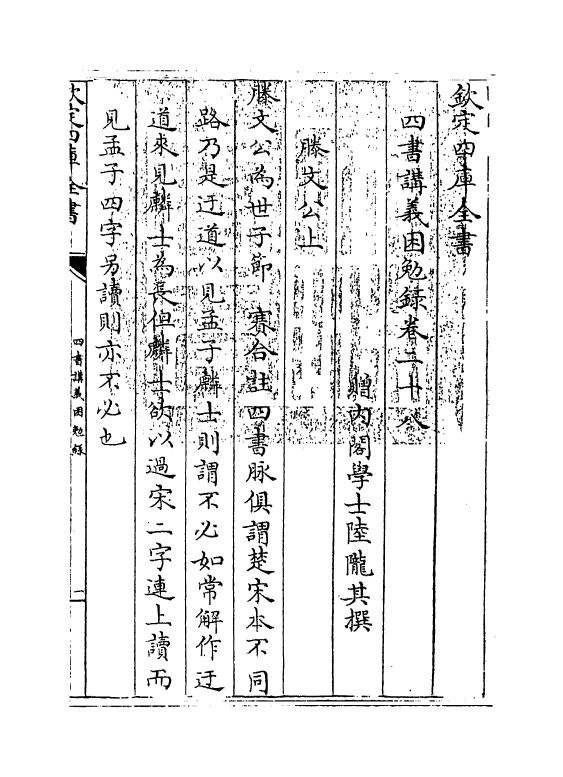 欽定四庫全書
四書講義困勉錄卷二十八
贈內閣學士陸隴其撰
滕文公上
滕文公為世子節 賽合註四書脉俱謂楚宋本不同
路乃是迂道以見孟子麟士則謂不必如常解作迂
道來見麟士為長但麟士欲以過宋二字連上讀而
見孟子四字另讀則亦不必也
欽定四庫全書
四書講義困勉錄
一